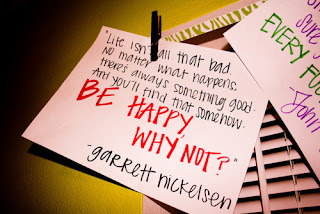 "Life isn't all that bad.
No matter what happens,
there's always something good.
And you'll find that somehow.
BE HAPPY,
WHY NOT?"
-garrett nickelsen
sure
EVERY FO
John